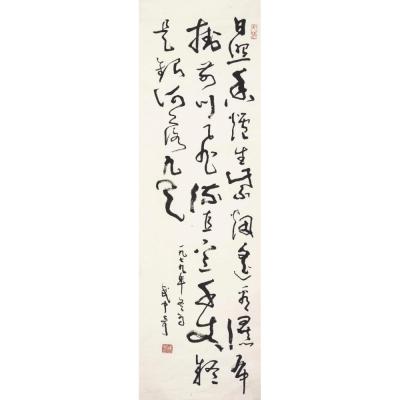 日照香爐生紫烟遥看瀑布
掛前川飛流直下三千丈疑
是銀河落九天
一九七九年
武中奇